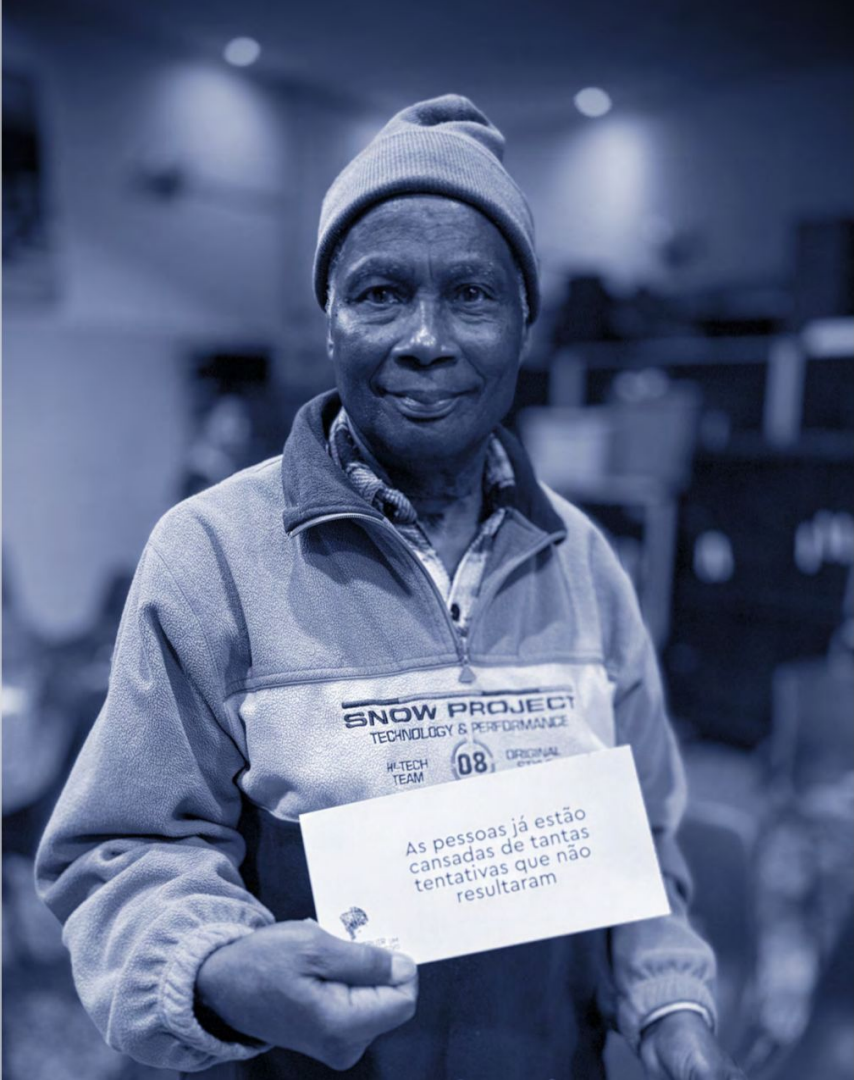 SNOW PROJECT
TECHNOLOGY & PERFORMANCE
HI-TECH
TEAM
08
ORIGINAL
As pessoas já estão
cansadas de tantas
tentativas que não
resultaram